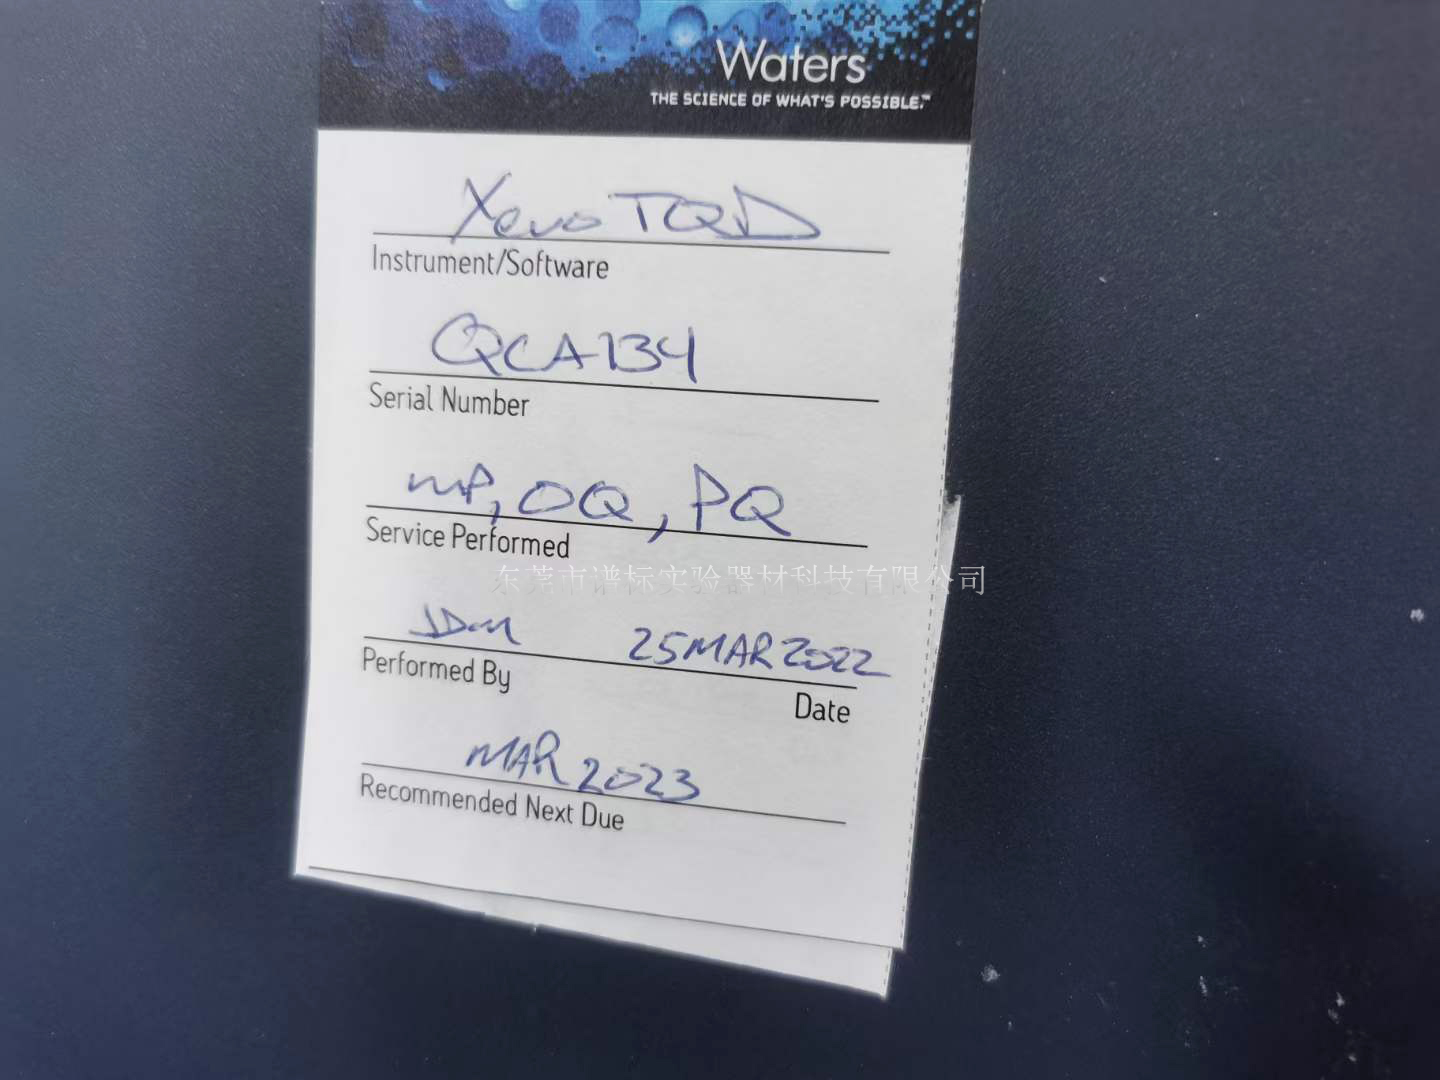 Waters
THE SCIENCE OF WHAT'S POSSIBLE.™
Xevo TQD
Instrument/Software
QCA134
Serial Number
MP, OQ, PQ
Service Performed
东莞市谱标实验器材科技有限公司
JDM 25MAR2022
Performed By Date
MAR 2023
Recommended Next Due